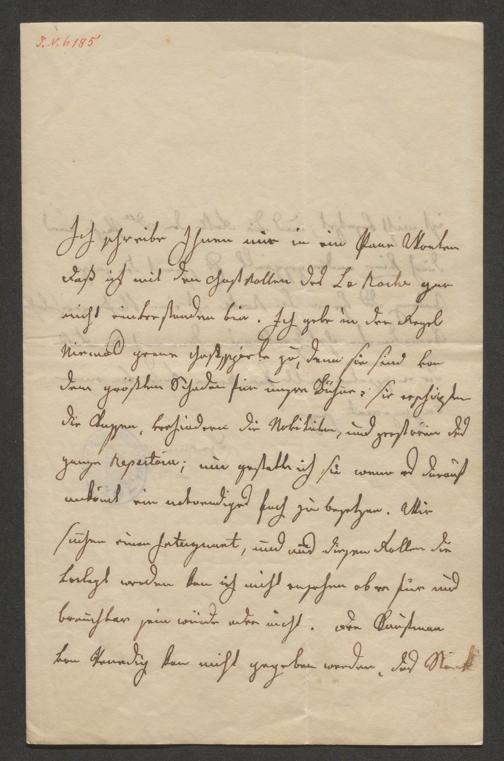 I. N. 6185
Ich schreibe Ihnen nur in ein Paar Worten
daß ich mit den Gastrollen des La Roche gar
nicht einverstanden bin. Ich gebe in der Regel
Niemals gerne Gastspiele zu, denn sie sind von
dem größten Schaden für unsre Bühne; sie erschöpfen
die Cassen, verhindern die Novitäten, und zerstören das
ganze Repertoir; nur gestatte ich sie wenn es darauf
ankömt ein notwendiges Fach zu besetzen. Wir
suchen einen Intriguant, und aus diesen Rollen die
vorlegt werden kan ich nicht ersehen ob er für uns
brauchbar sein würde oder nicht. Der Kaufman
von Venedig kan nicht gegeben werden, das Stück